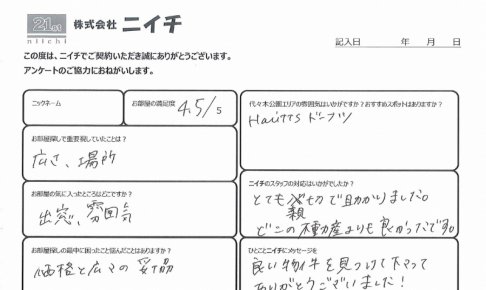 21st
niichi
株式会社 ニイチ
記入日 年 月 日
この度は、ニイチでご契約いただき誠にありがとうございます。
アンケートのご協力におねがいします。
ニックネーム
お部屋の満足度 4.5/5
お部屋探しで重要視していたことは?
広さ、場所
お部屋の気に入ったところはどこですか?
出窓、雰囲気
お部屋探しの最中に困ったこと悩んだことはありますか?
価格と広さの妥協
代々木公園エリアの雰囲気はいかがですか?おすすめスポットはありますか?
Haritts ドーナツ
ニイチのスタッフの対応はいかがでしたか?
とても親切で助かりました。
どこの不動産よりも良かったです。
ひとことニイチにメッセージを
良い物件を見つけて下さって
ありがとうございました!